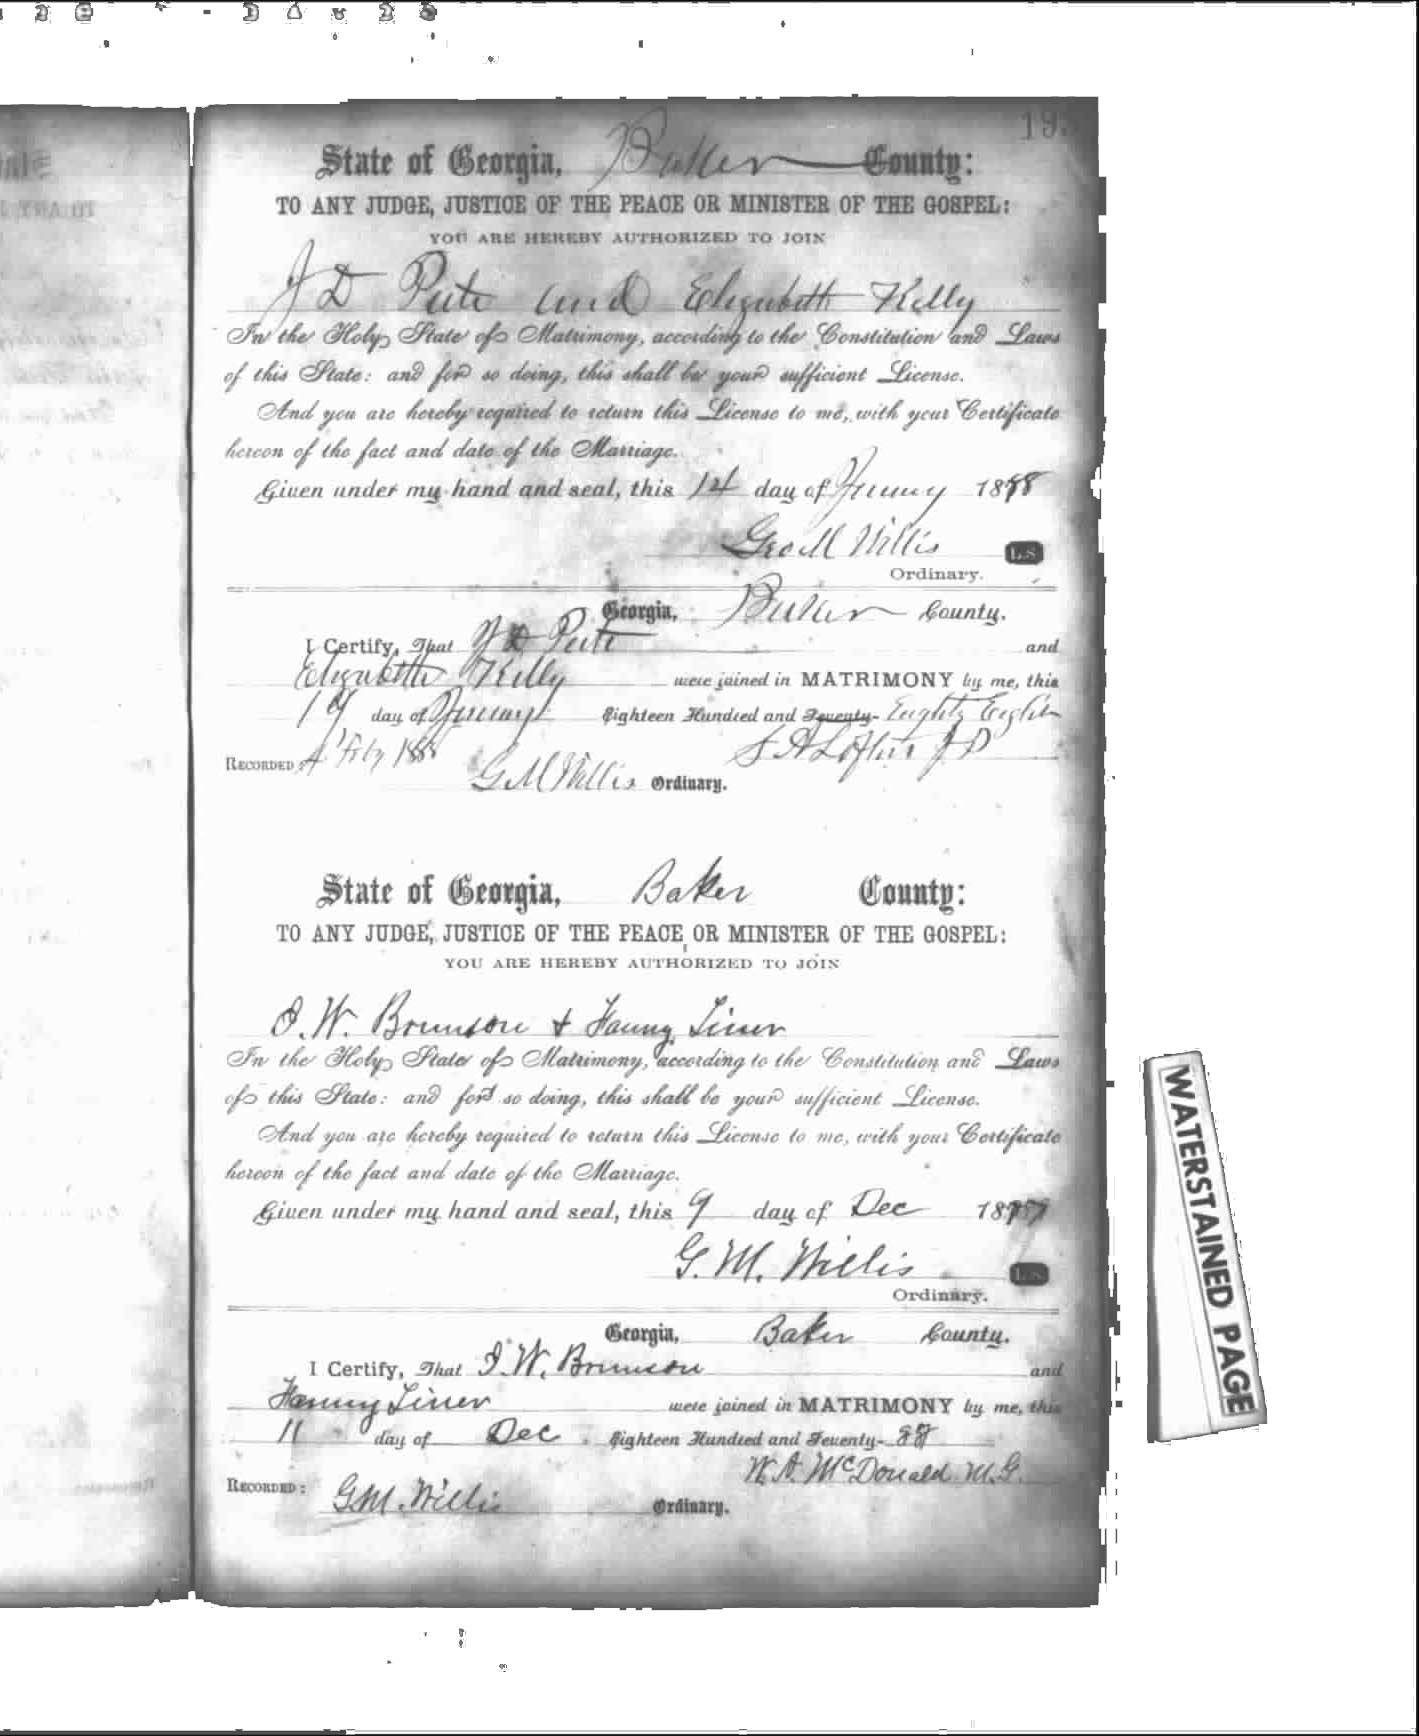 19
State of Georgia, Baker County:
TO ANY JUDGE, JUSTICE OF THE PEACE OR MINISTER OF THE GOSPEL:
YOU ARE HEREBY AUTHORIZED TO JOIN
J D Pate and Elizabeth Kelly
In the Holy State of Matrimony, according to the Constitution and Laws
of this State: and for so doing, this shall be your sufficient License.
And you are hereby required to return this License to me, with your Certificate
hereon of the fact and date of the Marriage.
Given under my hand and seal, this 14 day of 1888
Geo M Willis L.S.
Ordinary.
Georgia, Baker County.
I Certify, That J D Pate and
Elizabeth Kelly were joined in MATRIMONY by me, this
19 day of Eighteen Hundred and Seventy- Eighty Eight
RECORDED: 4 Feby 1888 J P
G M Willis Ordinary.
State of Georgia, Baker County:
TO ANY JUDGE, JUSTICE OF THE PEACE OR MINISTER OF THE GOSPEL:
YOU ARE HEREBY AUTHORIZED TO JOIN
W. Brunson & Fanny Liner
In the Holy State of Matrimony, according to the Constitution and Laws
of this State: and for so doing, this shall be your sufficient License.
And you are hereby required to return this License to me, with your Certificate
hereon of the fact and date of the Marriage.
Given under my hand and seal, this 9 day of Dec
G. M. Willis L.S.
Ordinary.
Georgia, Baker County.
I Certify, That W. Brunson and
Fanny Liner were joined in MATRIMONY by me, this
11 day of Dec Eighteen Hundred and Seventy-
W. A. McDonald M.G.
RECORDED: G.M. Willis Ordinary.
WATERSTAINED PAGE